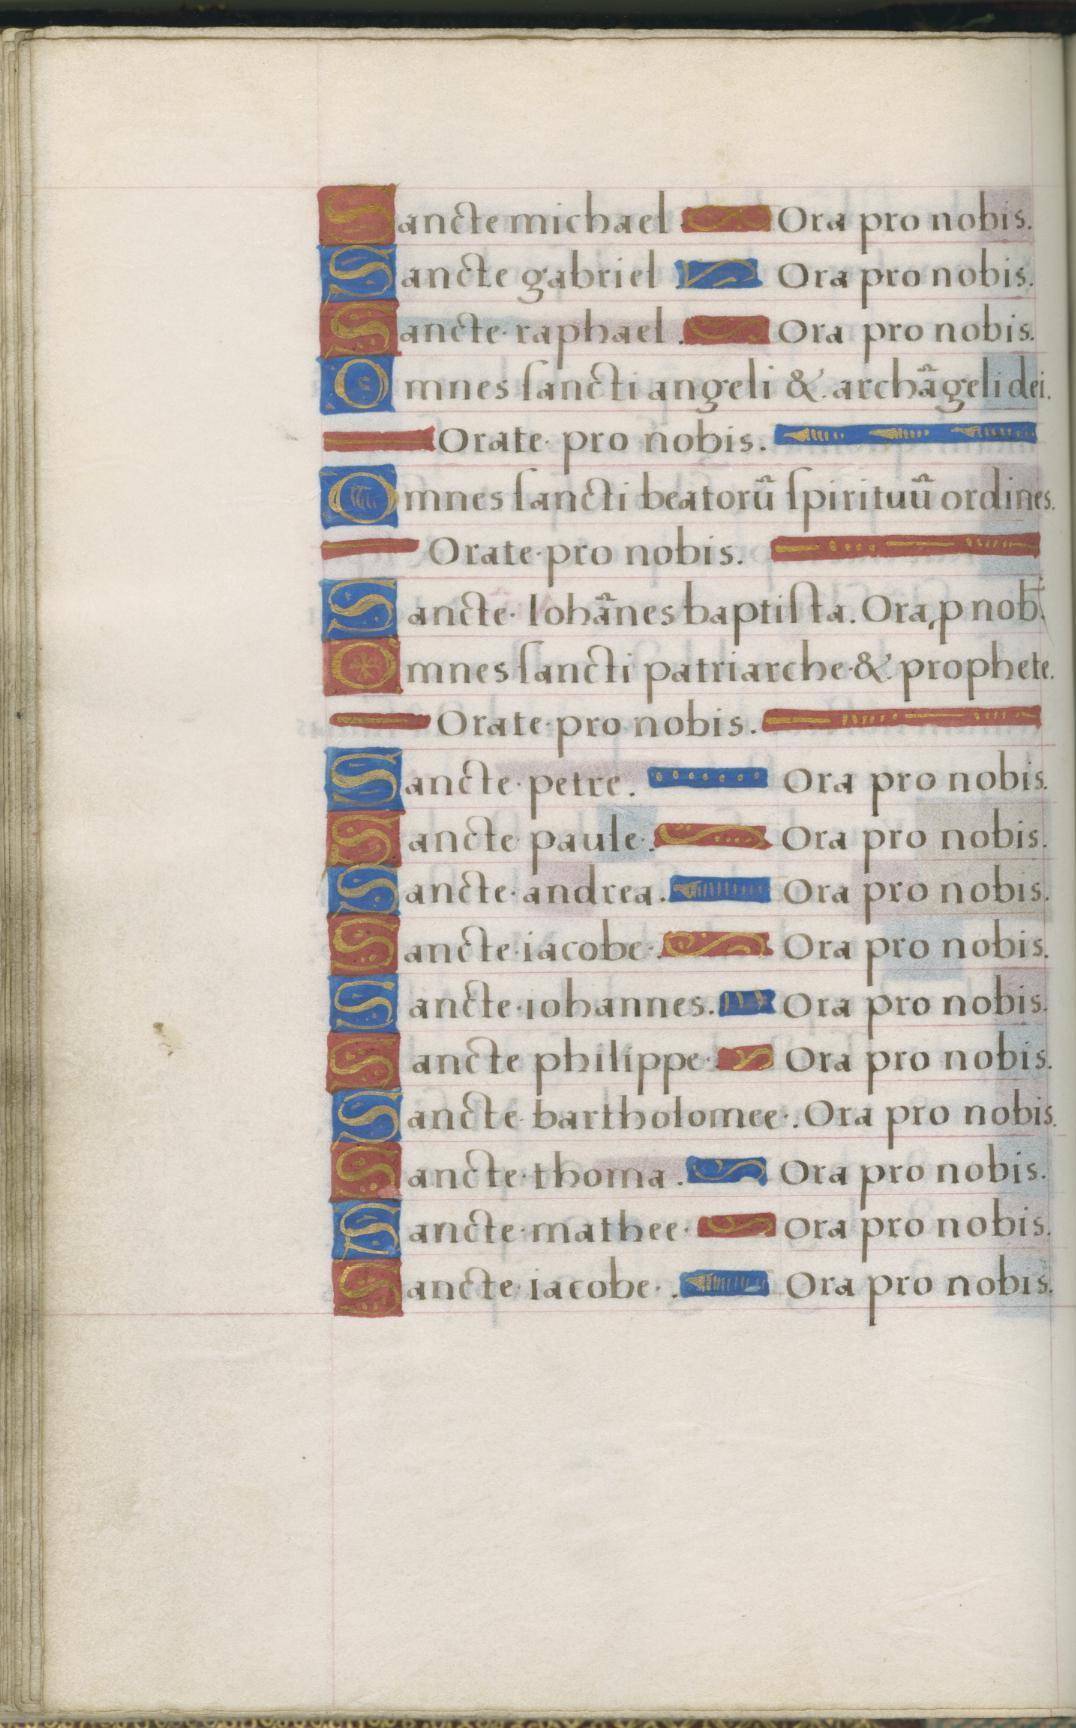 Sancte michael Ora pro nobis.
Sancte gabriel Ora pro nobis.
Sancte raphael. Ora pro nobis.
Omnes ſancti angeli & archãgeli dei.
Orate pro nobis.
Omnes ſancti beatorũ ſpirituũ ordines.
Orate pro nobis.
Sancte Iohãnes baptiſta. Ora ꝓ nob̃.
Omnes ſancti patriarche & prophete.
Orate pro nobis.
Sancte petre. Ora pro nobis.
Sancte paule. Ora pro nobis.
Sancte andrea. Ora pro nobis.
Sancte iacobe. Ora pro nobis.
Sancte iohannes. Ora pro nobis.
Sancte philippe Ora pro nobis.
Sancte bartholomee. Ora pro nobis.
Sancte thoma. Ora pro nobis.
Sancte mathee Ora pro nobis.
Sancte iacobe. Ora pro nobis.